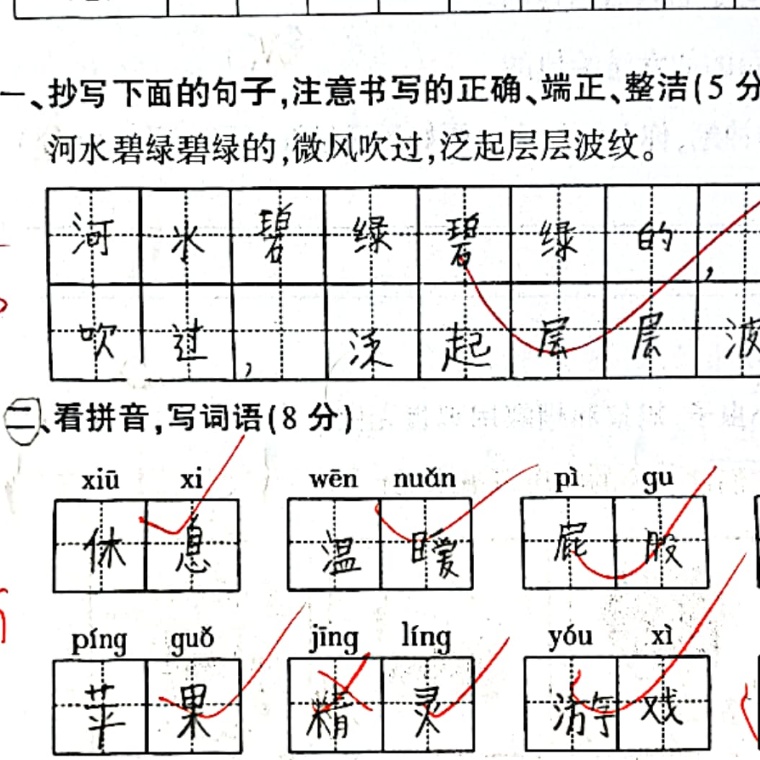 一、抄写下面的句子,注意书写的正确、端正、整洁(5分
河水碧绿碧绿的,微风吹过,泛起层层波纹。
河水碧绿碧绿的,
吹过,泛起层层波
二、看拼音,写词语(8分)
xiū xi wēn nuǎn pì gu
休息 温暖 屁股
píng guǒ jīng líng yóu xì
苹果 精灵 游戏